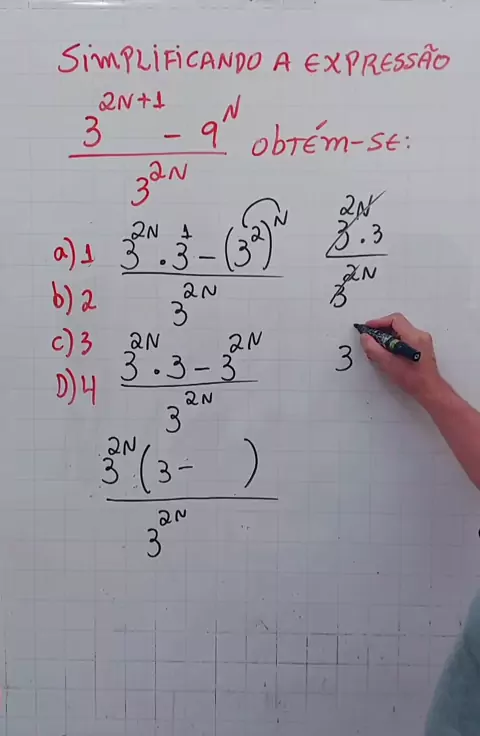 SIMPLIFICANDO A EXPRESSÃO
3^{2N+1} - 9^N
3^{2N}
OBTÉM-SE:
a) 1
b) 2
c) 3
D) 4
3^{2N} . 3^1 - (3^2)^N
3^{2N}
3^{2N} . 3 - 3^{2N}
3^{2N}
3^{2N} (3 - )
3^{2N}
3^{2N} . 3
3^{2N}
3